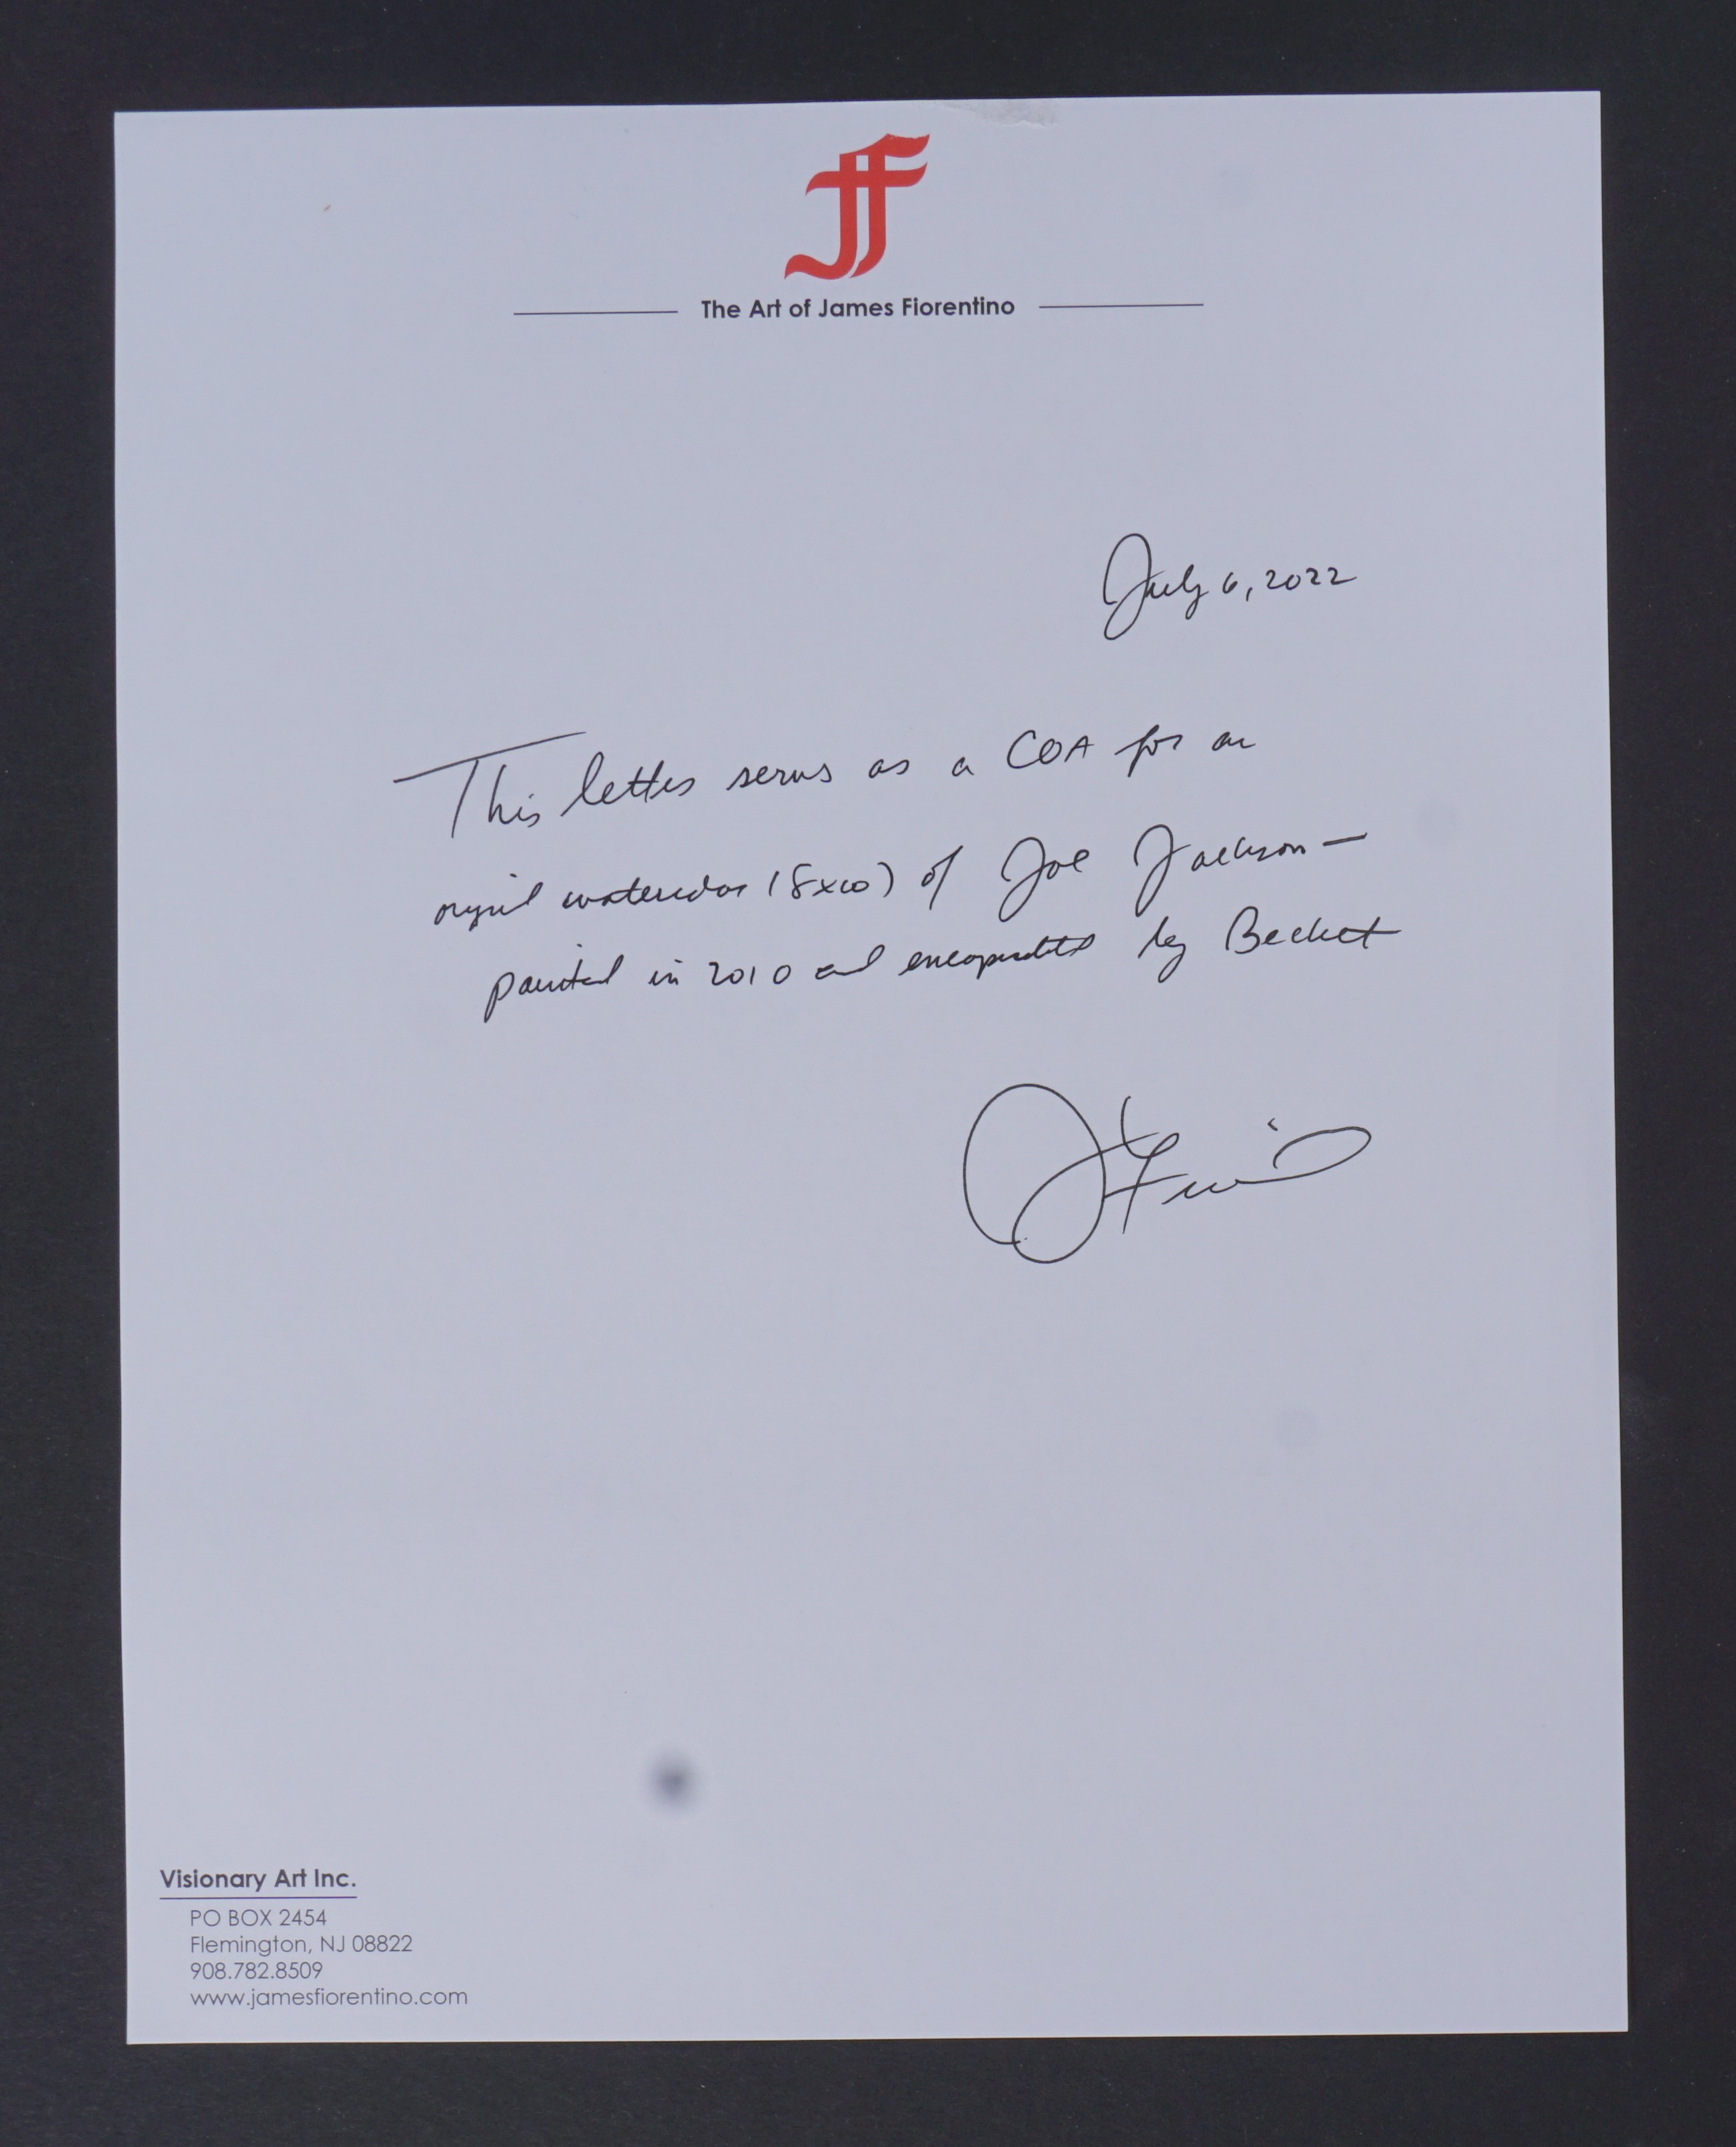 JF
The Art of James Fiorentino
July 6, 2022
This letter serves as a COA for an
original watercolor (8x10) of Joe Jackson —
painted in 2010 and encapsulated by Beckett
Visionary Art Inc.
PO BOX 2454
Flemington, NJ 08822
908.782.8509
www.jamesfiorentino.com